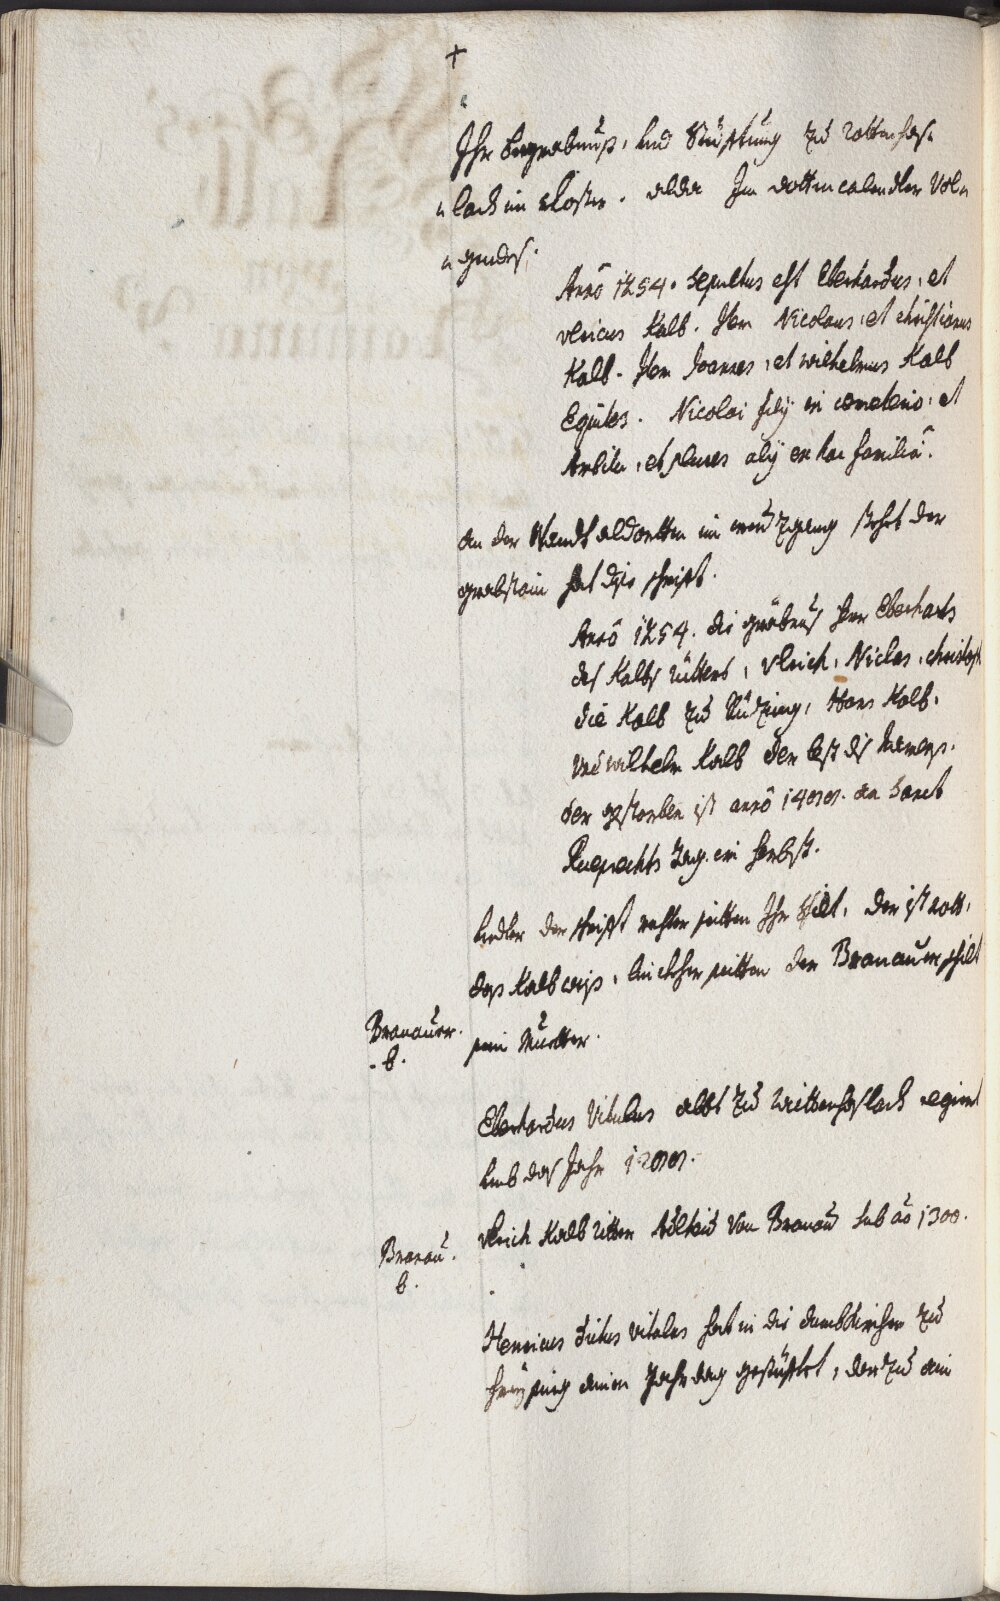 +
Ihr Begrebnus, und Stüfftung zu Rottenhas¬
¬lach im Closter. alda Im dotten calendler vol¬
¬gendes.
Anno 1254. Sepultus est Eberhardus, et
vlricus Kalb. Item Nicolaus, et christianus
Kalb. Item Joannes, et wilhelmus Kalb
Equites. Nicolai filÿ in cemeterio, et
et plures alÿ ex hac familia.
an der Wandt aldortten im Creuzgang stehet der
grabstain hat dise schrifft.
Anno 1254. die grebnus Herr Eberharts
des Kalbs ritters, Vlrich, Niclas, christoff
die Kalb zu, Hans Kalb,
Und wilhelm Kalb der lest dis Namens.
der gestorben ist anno 1400. an Sanct
Rueprechts tag im herbst.
Under der schrifft rechter seitten Ihr Schilt, der ist rott,
das Kalb weiss, linckher seitten der Branauer schilt
Branauer.
.b.
sein Muetter.
Eberhardus Vitulus abbt zu Raittenhaslach regiert
umb das Jahr 1200.
Vlrich Kalb ritter von Branau sub ao 1300.
Branau.
b.
Henricus dictus vitulus hat in die dumbkirchen zu
freÿsing ainen Jahrdag gestüfftet, darzu ain